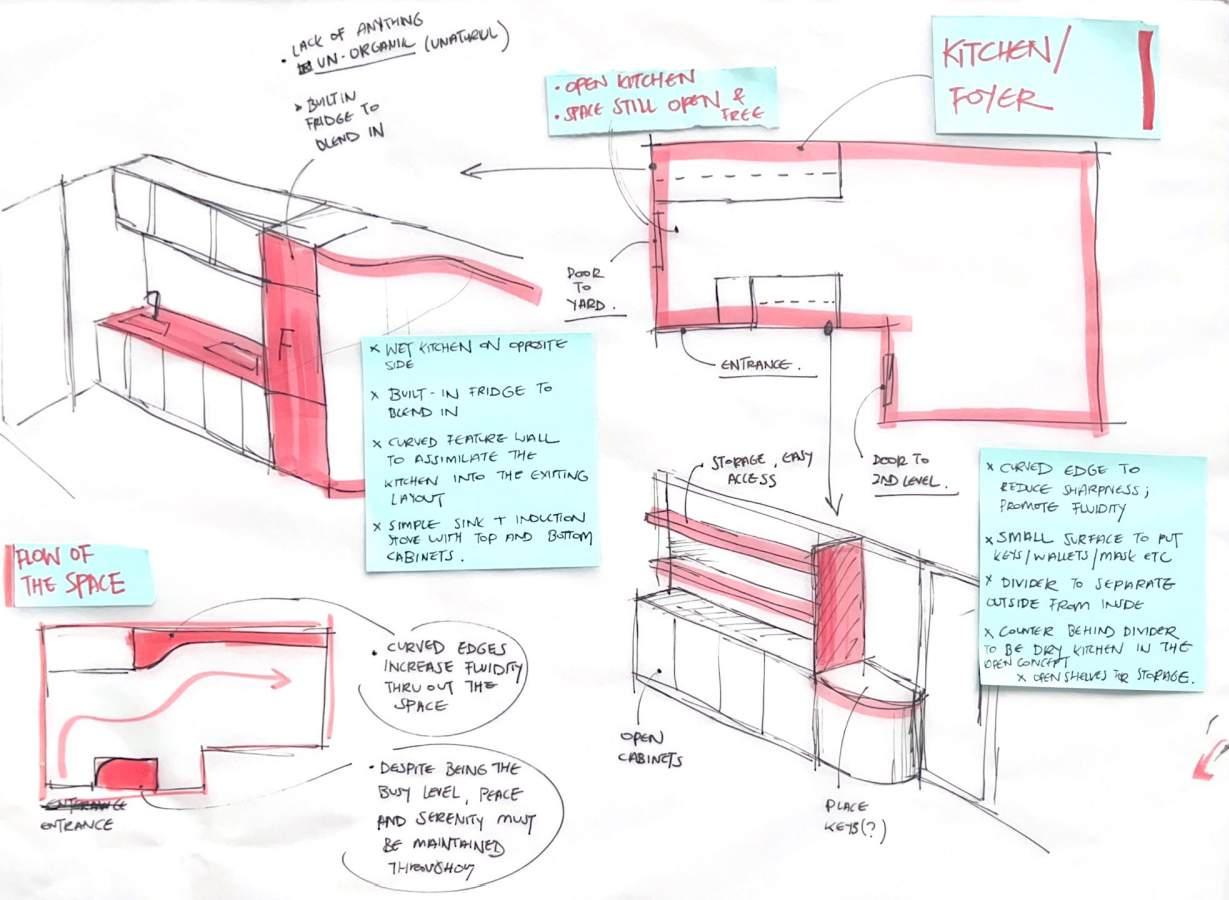 • LACK OF ANYTHING
UN-ORGANIC (UNATURUL)
× BUILT IN
FRIDGE TO
BLEND IN
• OPEN KITCHEN
• SPACE STILL OPEN &
FREE
KITCHEN/
FOYER
DOOR
TO
YARD.
ENTRANCE.
F
× WET KITCHEN ON OPPOSITE
SIDE
× BUILT-IN FRIDGE TO
BLEND IN
× CURVED FEATURE WALL
TO ASSIMILIATE THE
KITCHEN INTO THE EXISTING
LAYOUT
× SIMPLE SINK + INDUCTION
STOVE WITH TOP AND BOTTOM
CABINETS.
STORAGE, EASY
ACCESS
DOOR TO
2ND LEVEL.
× CURVED EDGE TO
REDUCE SHARPNESS;
PROMOTE FLUIDITY
× SMALL SURFACE TO PUT
KEYS/WALLETS/MASK ETC
× DIVIDER TO SEPARATE
OUTSIDE FROM INSIDE
× COUNTER BEHIND DIVIDER
TO BE DRY KITCHEN IN THE
OPEN CONCEPT
× OPEN SHELVES FOR STORAGE.
FLOW OF
THE SPACE
• CURVED EDGES
INCREASE FLUIDITY
THRU OUT THE
SPACE
• DESPITE BEING THE
BUSY LEVEL, PEACE
AND SERENITY MUST
BE MAINTAINED
THROUGHOUT
ENTRANCE
OPEN
CABINETS
PLACE
KEYS(?)